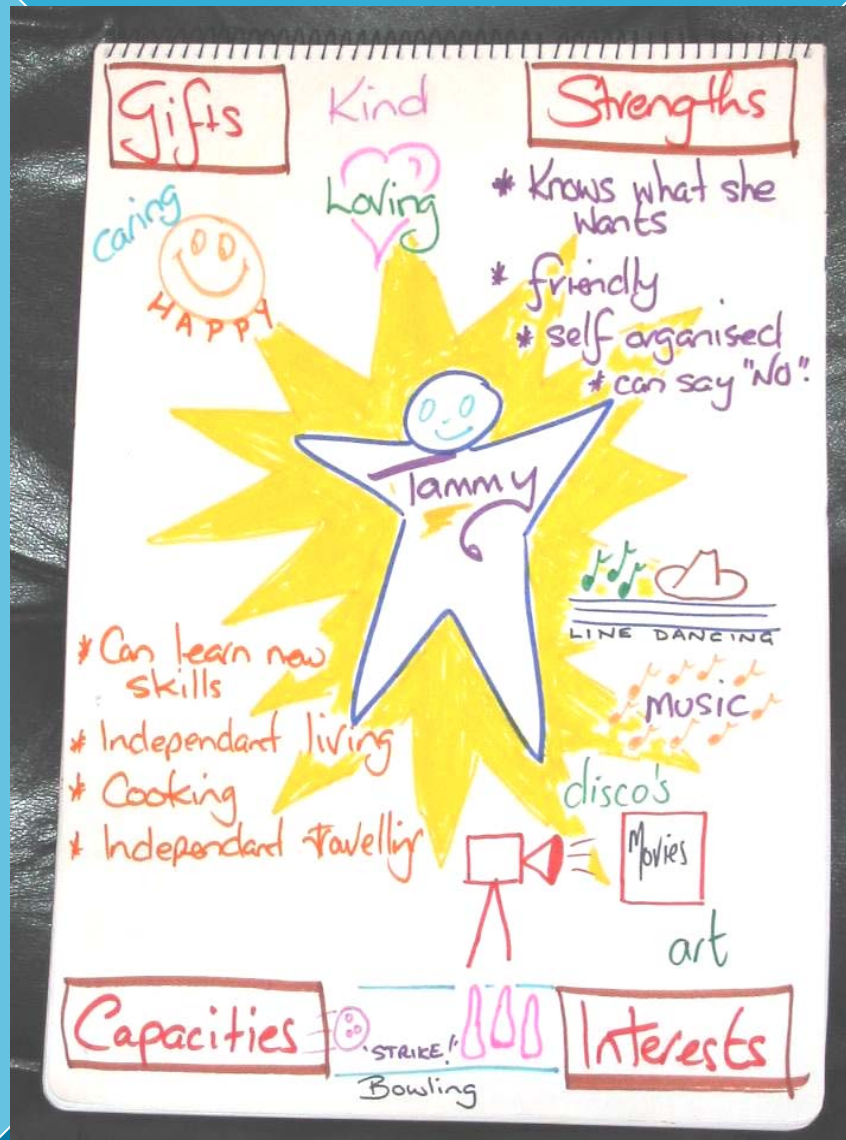 Gifts
Kind
Strengths
Loving
caring
HAPPY
* Knows what she
wants
* friendly
* self organised
* can say "NO".
Tammy
LINE DANCING
MUSIC
disco's
Movies
art
* Can learn new
skills
* Independant living
* Cooking
* Independant travelling
Capacities
"STRIKE!"
Bowling
Interests